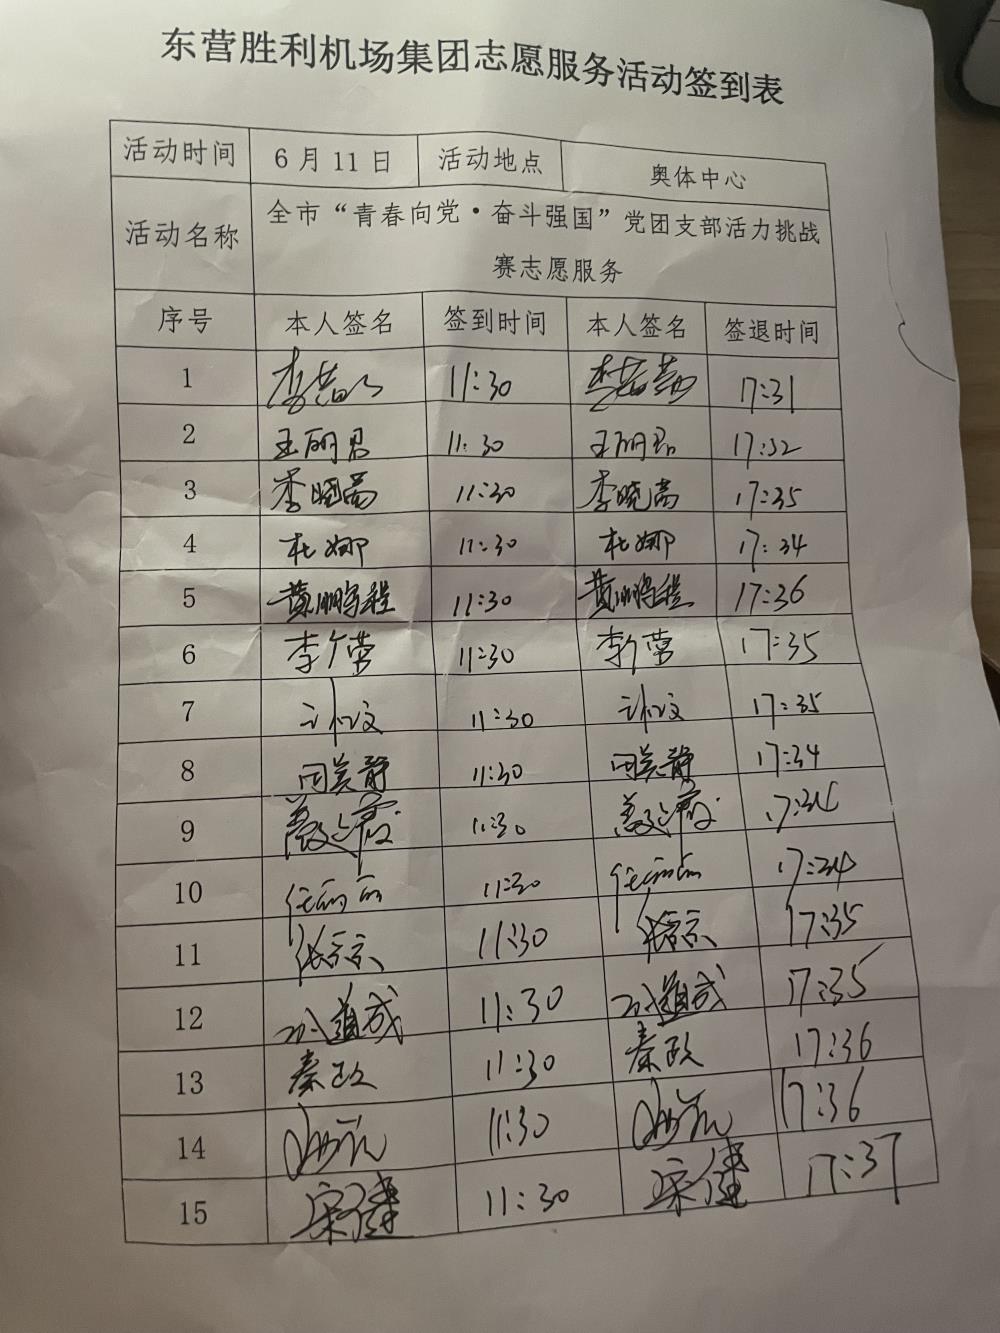 东营胜利机场集团志愿服务活动签到表
活动时间 6月11日 活动地点 奥体中心
活动名称 全市“青春向党·奋斗强国”党团支部活力挑战
赛志愿服务
序号 本人签名 签到时间 本人签名 签退时间
1 11:30 17:31
2 王丽君 11:30 王丽君 17:32
3 李晓嵩 11:30 李晓嵩 17:35
4 杜娜 11:30 杜娜 17:34
5 黄鹏程 11:30 黄鹏程 17:36
6 李广营 11:30 李广营 17:35
7 11:30 17:35
8 闫美静 11:30 闫美静 17:34
9 11:30 17:34
10 任丽丽 11:30 任丽丽 17:34
11 11:30 17:35
12 11:30 17:35
13 秦政 11:30 秦政 17:36
14 11:30 17:36
15 宋健 11:30 宋健 17:37